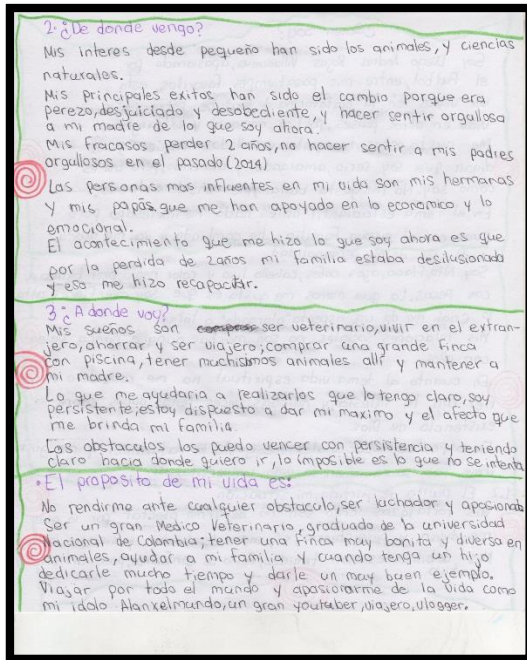 2. ¿De donde vengo?
Mis interes desde pequeño han sido los animales, y ciencias
naturales.
Mis principales exitos han sido el cambio porque era
perezo, desjuiciado y desobediente, y hacer sentir orgullosa
a mi madre de lo que soy ahora.
Mis fracasos perder 2 años, no hacer sentir a mis padres
orgullosos en el pasado (2014)
Las personas mas influentes en mi vida son mis hermanas
y mis papás que me han apoyado en lo economico y lo
emocional.
El acontecimiento que me hizo lo que soy ahora es que
por la perdida de 2años mi familia estaba desilusionada
y eso me hizo recapacitar.
3. ¿A donde voy?
Mis sueños son ser veterinario, vivir en el extran-
jero, ahorrar y ser viajero; comprar una grande finca
con piscina, tener muchisimos animales alli y mantener a
mi madre.
Lo que me ayudaria a realizarlos que lo tengo claro, soy
persistente; estoy dispuesto a dar mi maximo y el afecto que
me brinda mi familia.
Los obstaculos los puedo vencer con persistencia y teniendo
claro hacia donde quiero ir, lo imposible es lo que no se intenta
• El proposito de mi vida es:
No rendirme ante cualquier obstaculo, ser luchador y apasionado
Ser un gran Medico Veterinario, graduado de la universidad
Nacional de Colombia; tener una finca muy bonita y diversa en
animales, ayudar a mi familia y cuando tenga un hijo
dedicarle mucho tiempo y darle un muy buen ejemplo.
Viajar por todo el mundo y apasionarme de la vida como
mi idolo Alanxelmundo, un gran youtuber, viajero, vlogger.